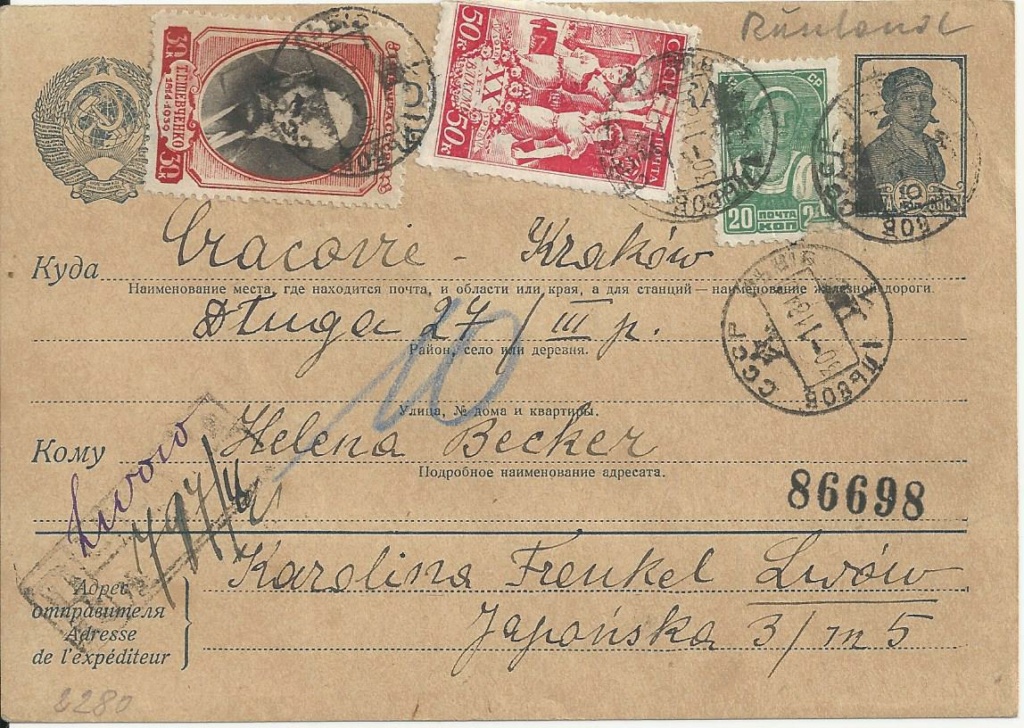 Rusland
30 к
Т.Г. ШЕВЧЕНКО
1814-1939
30 к
50 к
50 к
XX
ПОЧТА
20 ПОЧТА
КОП
Куда Cracovie - Kraków
Наименование места, где находится почта, и области или края, а для станций — наименование железной дороги.
Długa 27 / III p.
Район, село или деревня.
10
Улица, № дома и квартиры.
Кому Helena Becker
Подробное наименование адресата.
СССР ЛЬВОВ
Lwow
86698
Karolina Frenkel Lwów
Адрес
отправителя
Adresse
de l'expéditeur
Japońska 3/m 5
2280